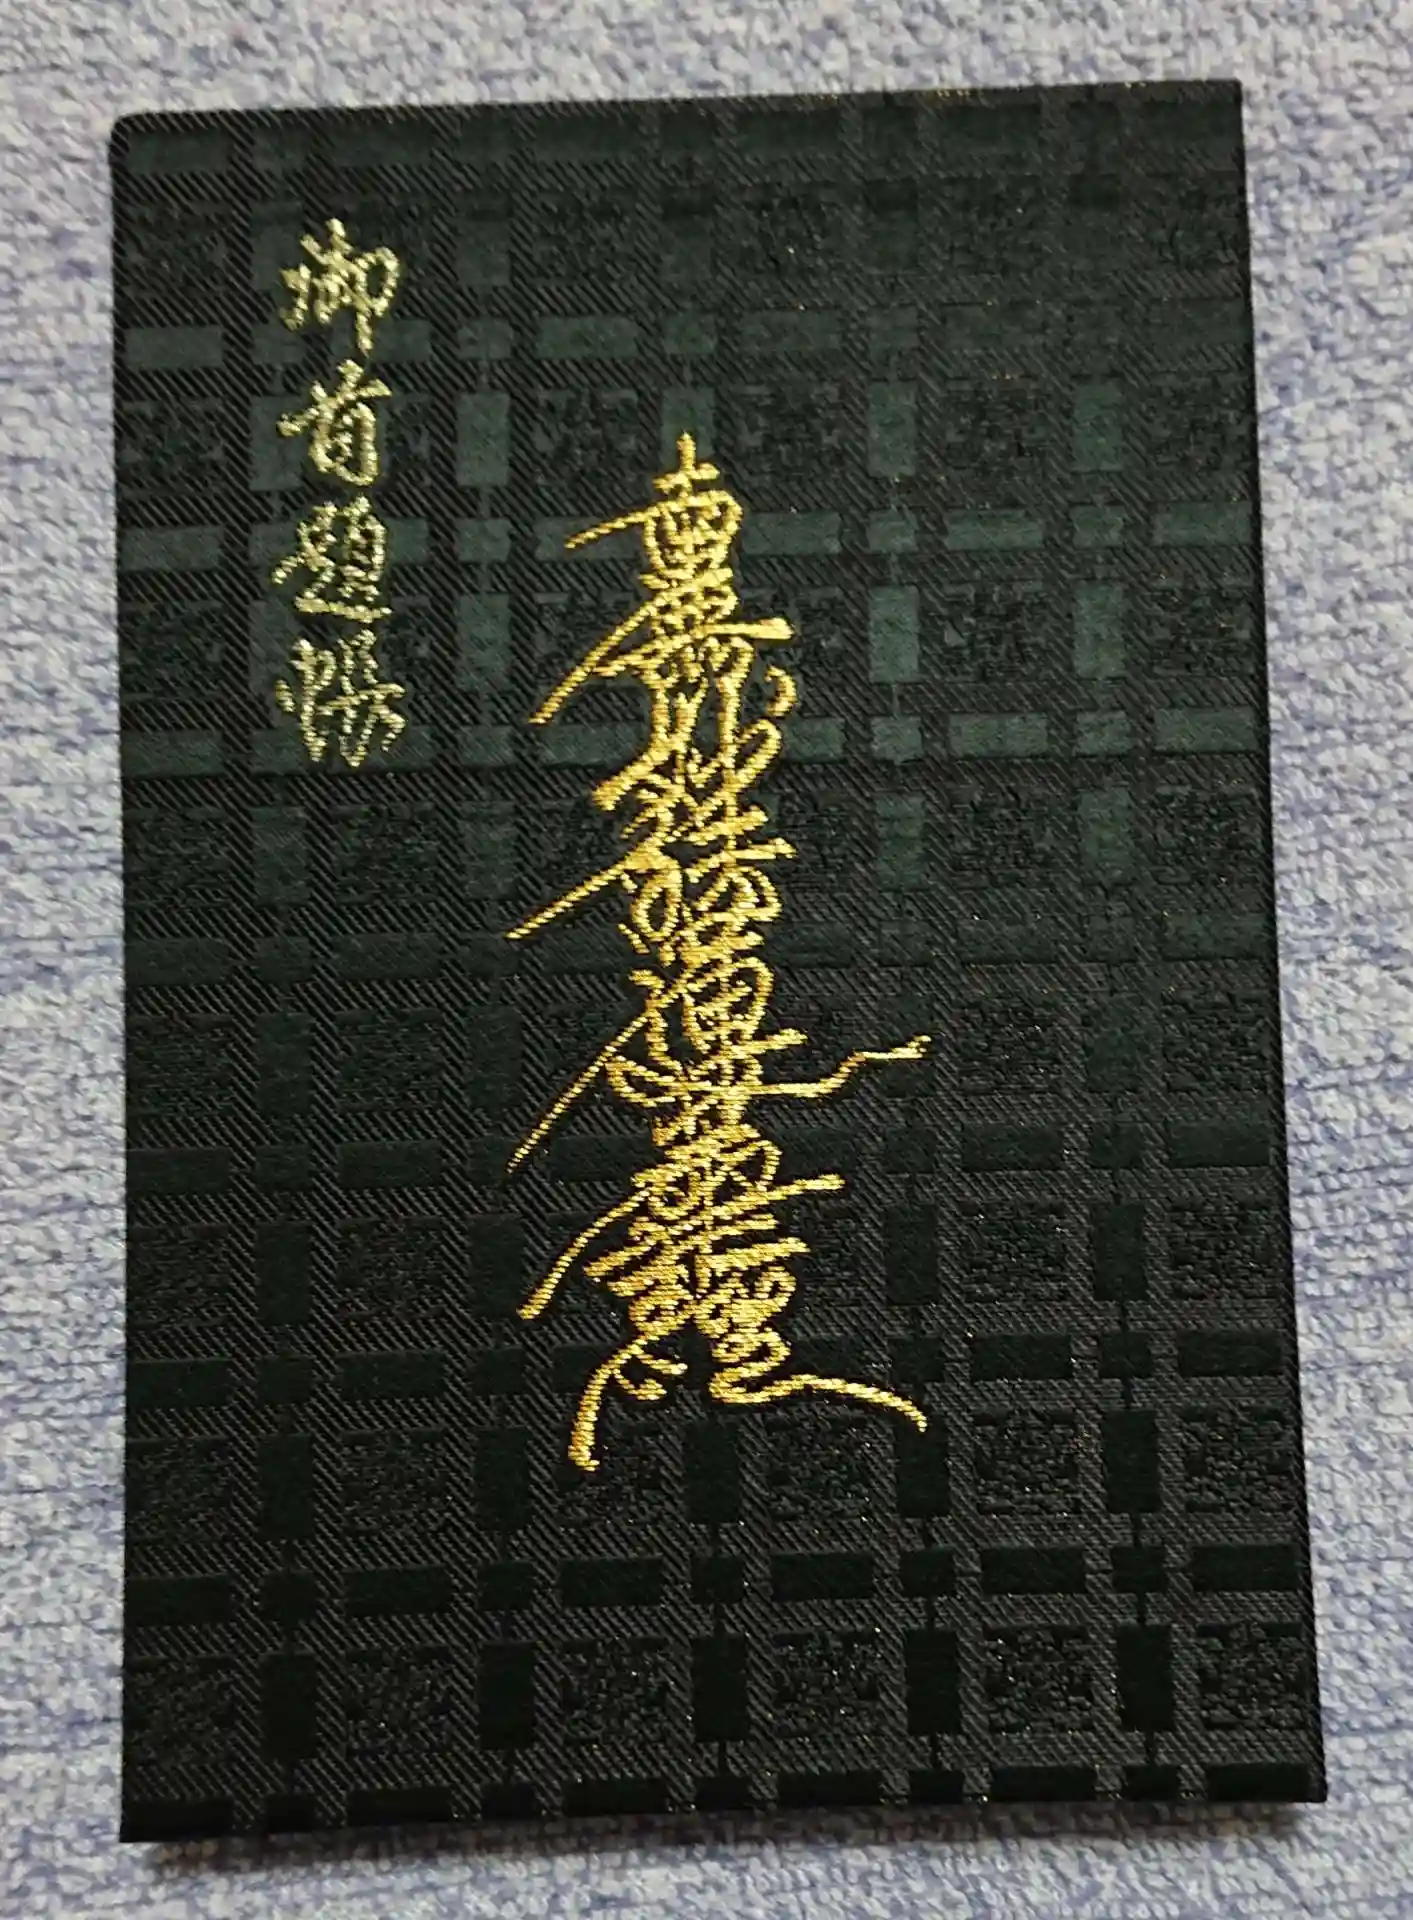 南無妙法蓮華經
御首題帳